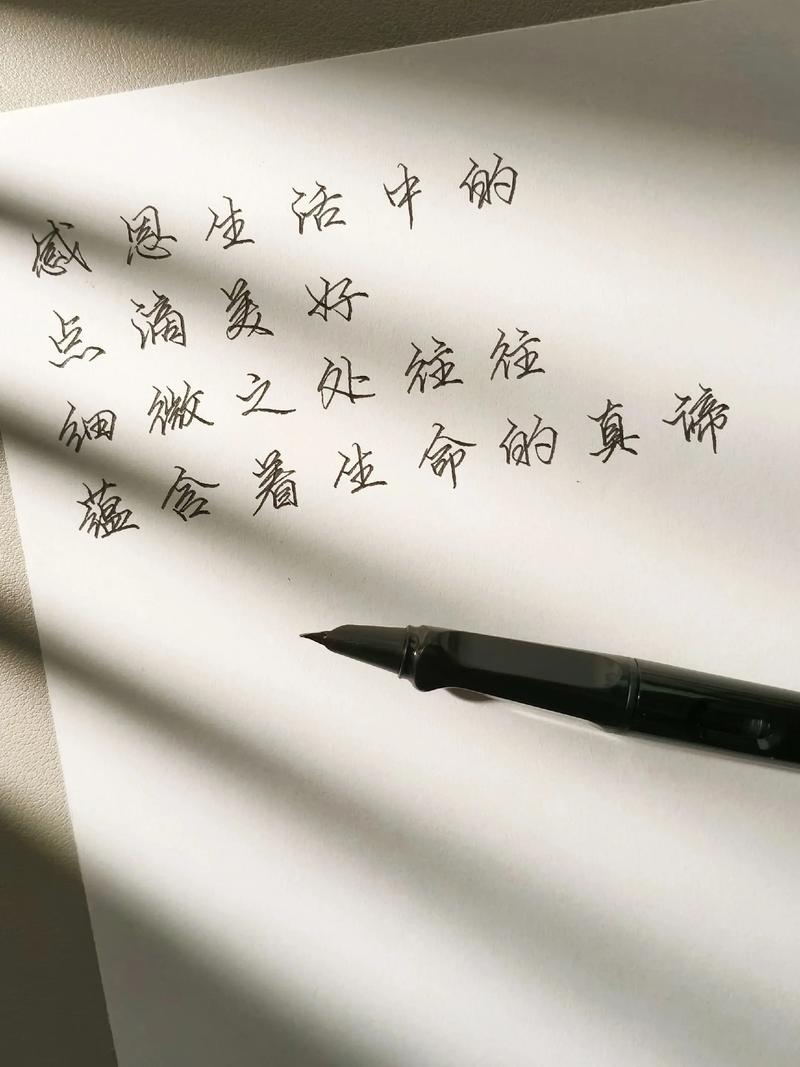 感恩生活中的
点滴美好
细微之处往往
蕴含着生命的真谛